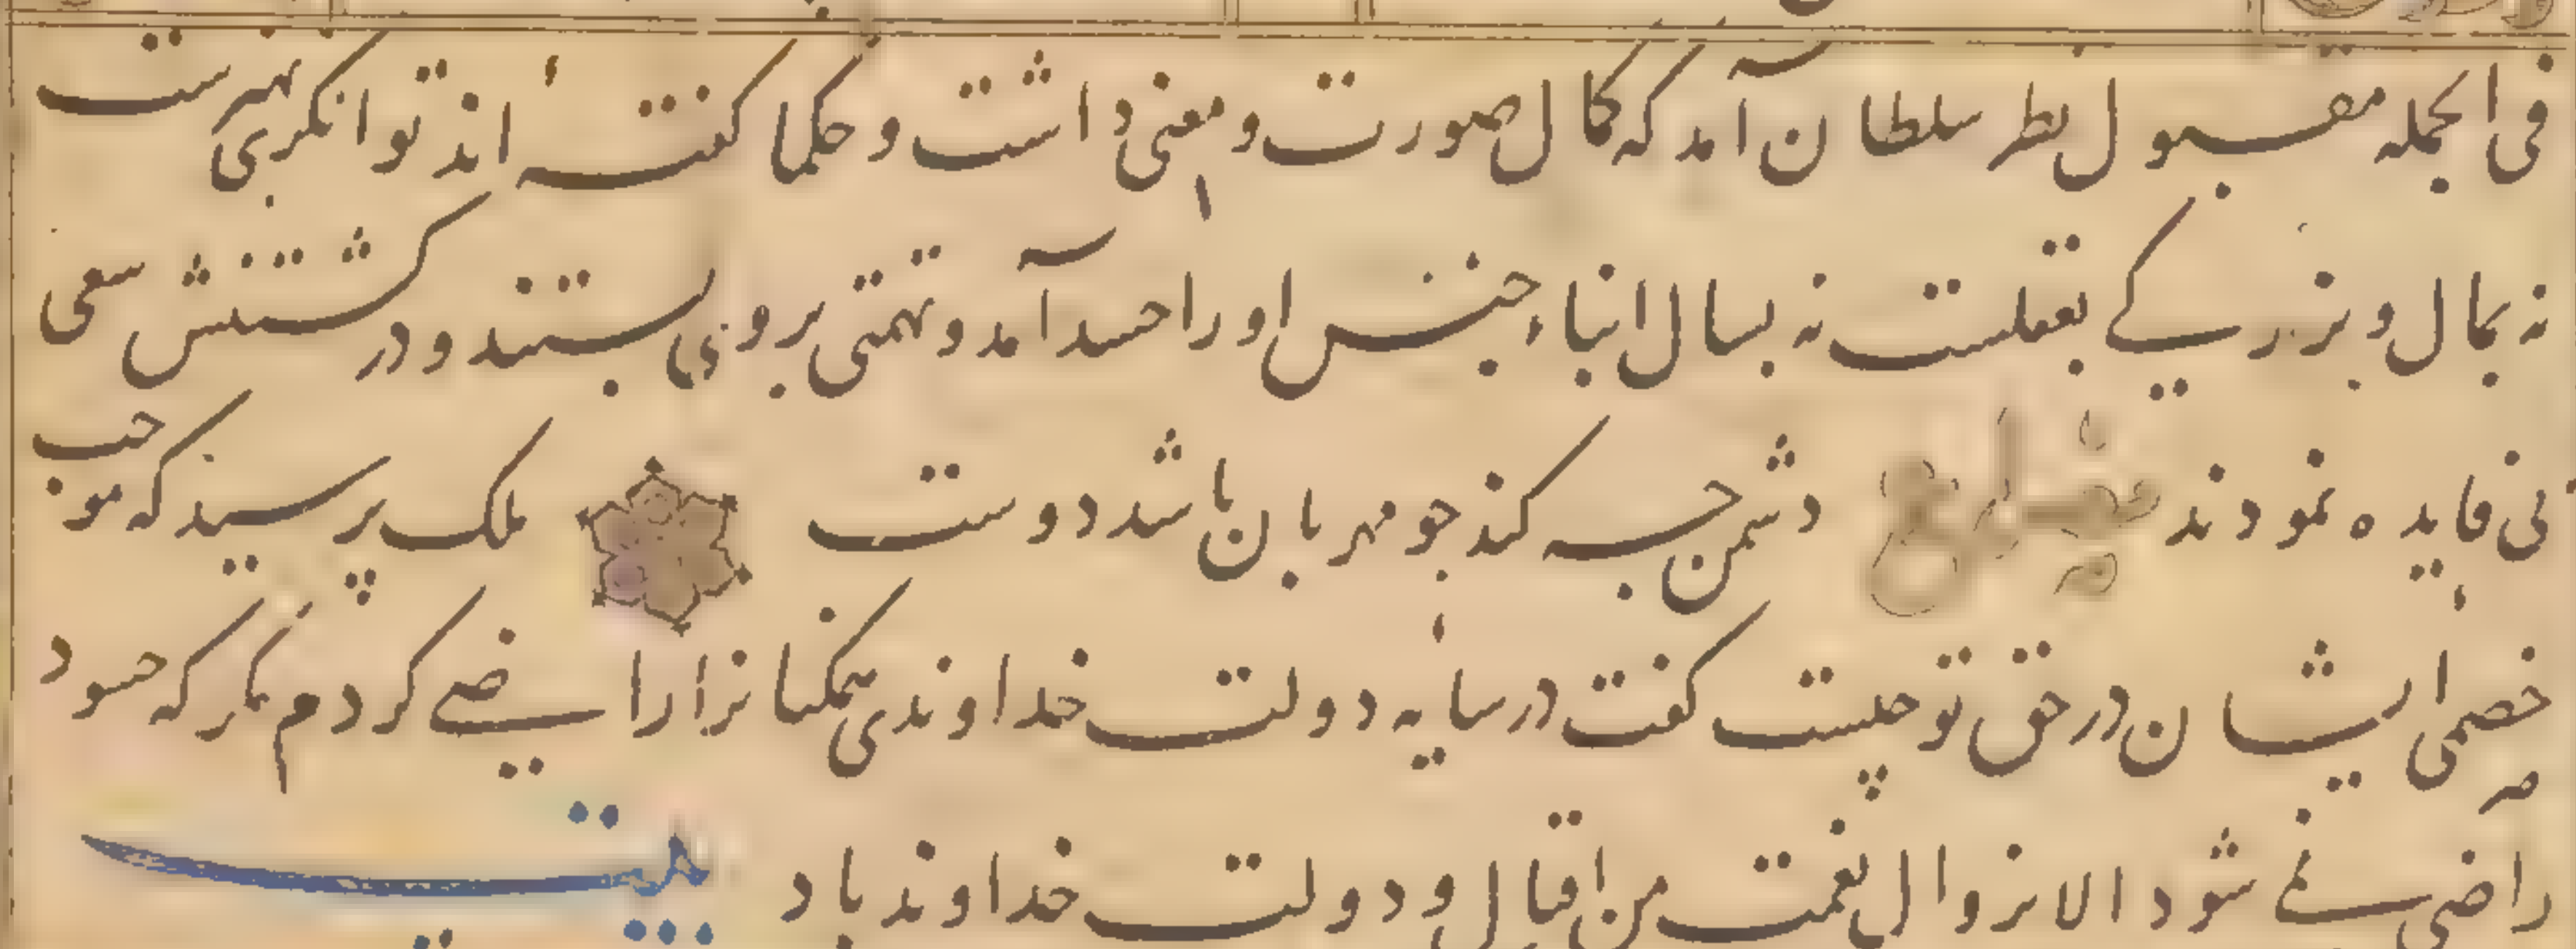 فی الجمله مقبول نظر سلطان آمد که کمال صورت و معنی داشت و حکما کفته اند توانکری بهنرست
نه بمال و بزرکی بعقلست نه بسال ابناء جنس او را حسد آمد و تهمتی بر وی بستند و در کشتنش سعی
بی فایده نمودند مصراع دشمن چه کند جو مهربان باشد دوست ملک پرسید که موجب
خصمی ایشان در حق تو چیست کفت در سایه دولت خداوندی همکنانرا راضی کردم مکر که حسود
راضی نمی شود الا بزوال نعمت من اقبال و دولت خداوند باد بیت